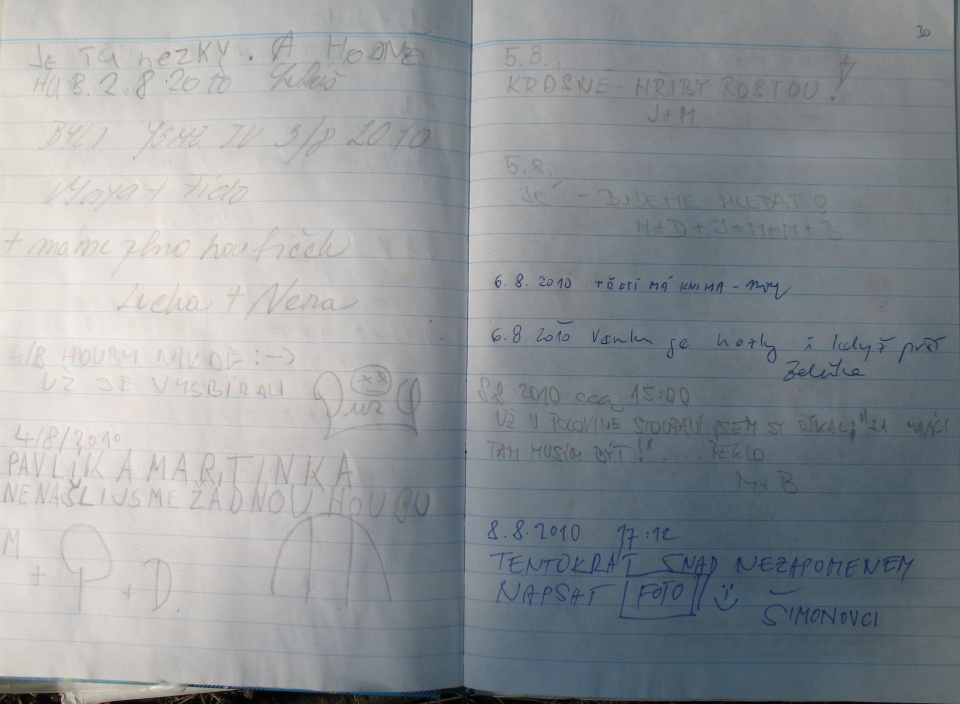 JE TU HEZKY. A HODNĚ
HUB. 2.8.2010
BYLI JSME TU 3/8 2010
Maya + Fido
+ máme plno
Lucka + Nera
4/8 HOUBY NIKDE :->
UŽ JE VYSBÍRALI
4/8/2010
PAVLÍK A MARTINKA
NENAŠLI JSME ŽÁDNOU HOUBU
M
+
+ D
30
5.8.
KRÁSNÉ - HŘIBY ROSTOU!
J+M
5.8.
JÉ - BUDEME HLEDAT
M+D+J+M+M+
6.8.2010 TŘETÍ MÁ KNIHA -
6.8.2010 Venku je hezky i když prší
8.8. 2010 cca 15:00
UŽ V POLOVINĚ STOUPÁNÍ JSEM SI ŘÍKAL; "ZA
TAM MUSÍM BÝT!" .... PEKLO
M+B
8.8.2010 17:12
TENTOKRÁT SNAD NEZAPOMENEM
NAPSAT FOTO
ŠIMONOVCI